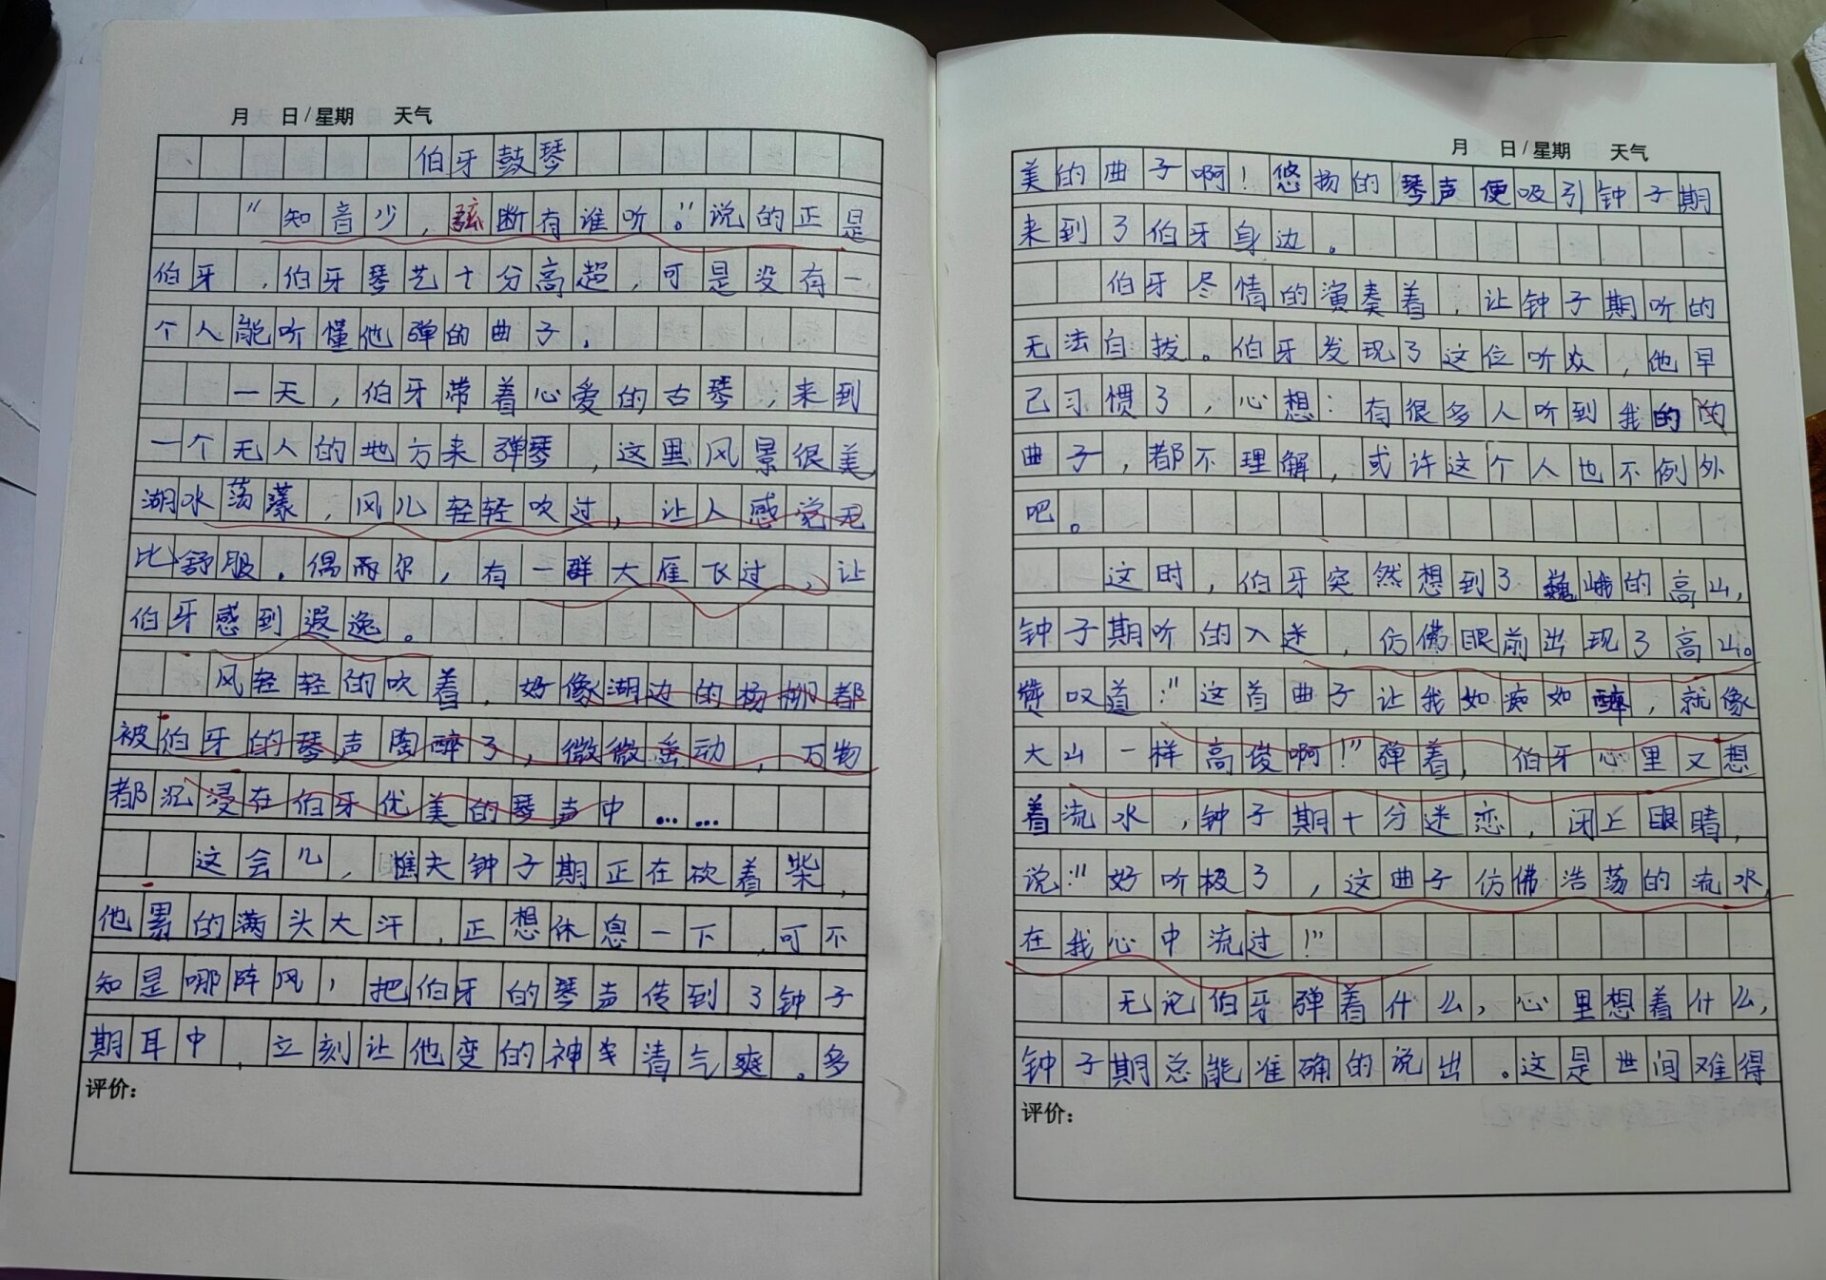 月 日/星期 天气
伯牙鼓琴
"知音少，弦断有谁听。"说的正是
伯牙，伯牙琴艺十分高超，可是没有一
个人能听懂他弹的曲子．
一天，伯牙带着心爱的古琴，来到
一个无人的地方来弹琴，这里风景很美
湖水荡漾，风儿轻轻吹过，让人感觉无
比舒服．偶而尔，有一群大雁飞过，让
伯牙感到遐逸。
风轻轻的吹着，好像湖边的杨柳都
被伯牙的琴声陶醉了，微微晃动，万物
都沉浸在伯牙优美的琴声中……
这会儿，樵夫钟子期正在砍着柴，
他累的满头大汗，正想休息一下，可不
知是哪阵风，把伯牙的琴声传到了钟子
期耳中，立刻让他变的神气清气爽．多
评价：
月 日/星期 天气
美的曲子啊！悠扬的琴声便吸引钟子期
来到了伯牙身边。
伯牙尽情的演奏着，让钟子期听的
无法自拔。伯牙发现了这位听众，他早
已习惯了，心想：有很多人听到我的的
曲子，都不理解，或许这个人也不例外
吧。
这时，伯牙突然想到了巍峨的高山，
钟子期听的入迷，仿佛眼前出现了高山。
赞叹道："这首曲子让我如痴如醉，就像
大山一样高俊啊！"弹着，伯牙心里又想
着流水，钟子期十分迷恋，闭上眼睛，
说："好听极了，这曲子仿佛浩荡的流水，
在我心中流过！"
无论伯牙弹着什么，心里想着什么，
钟子期总能准确的说出。这是世间难得
评价：